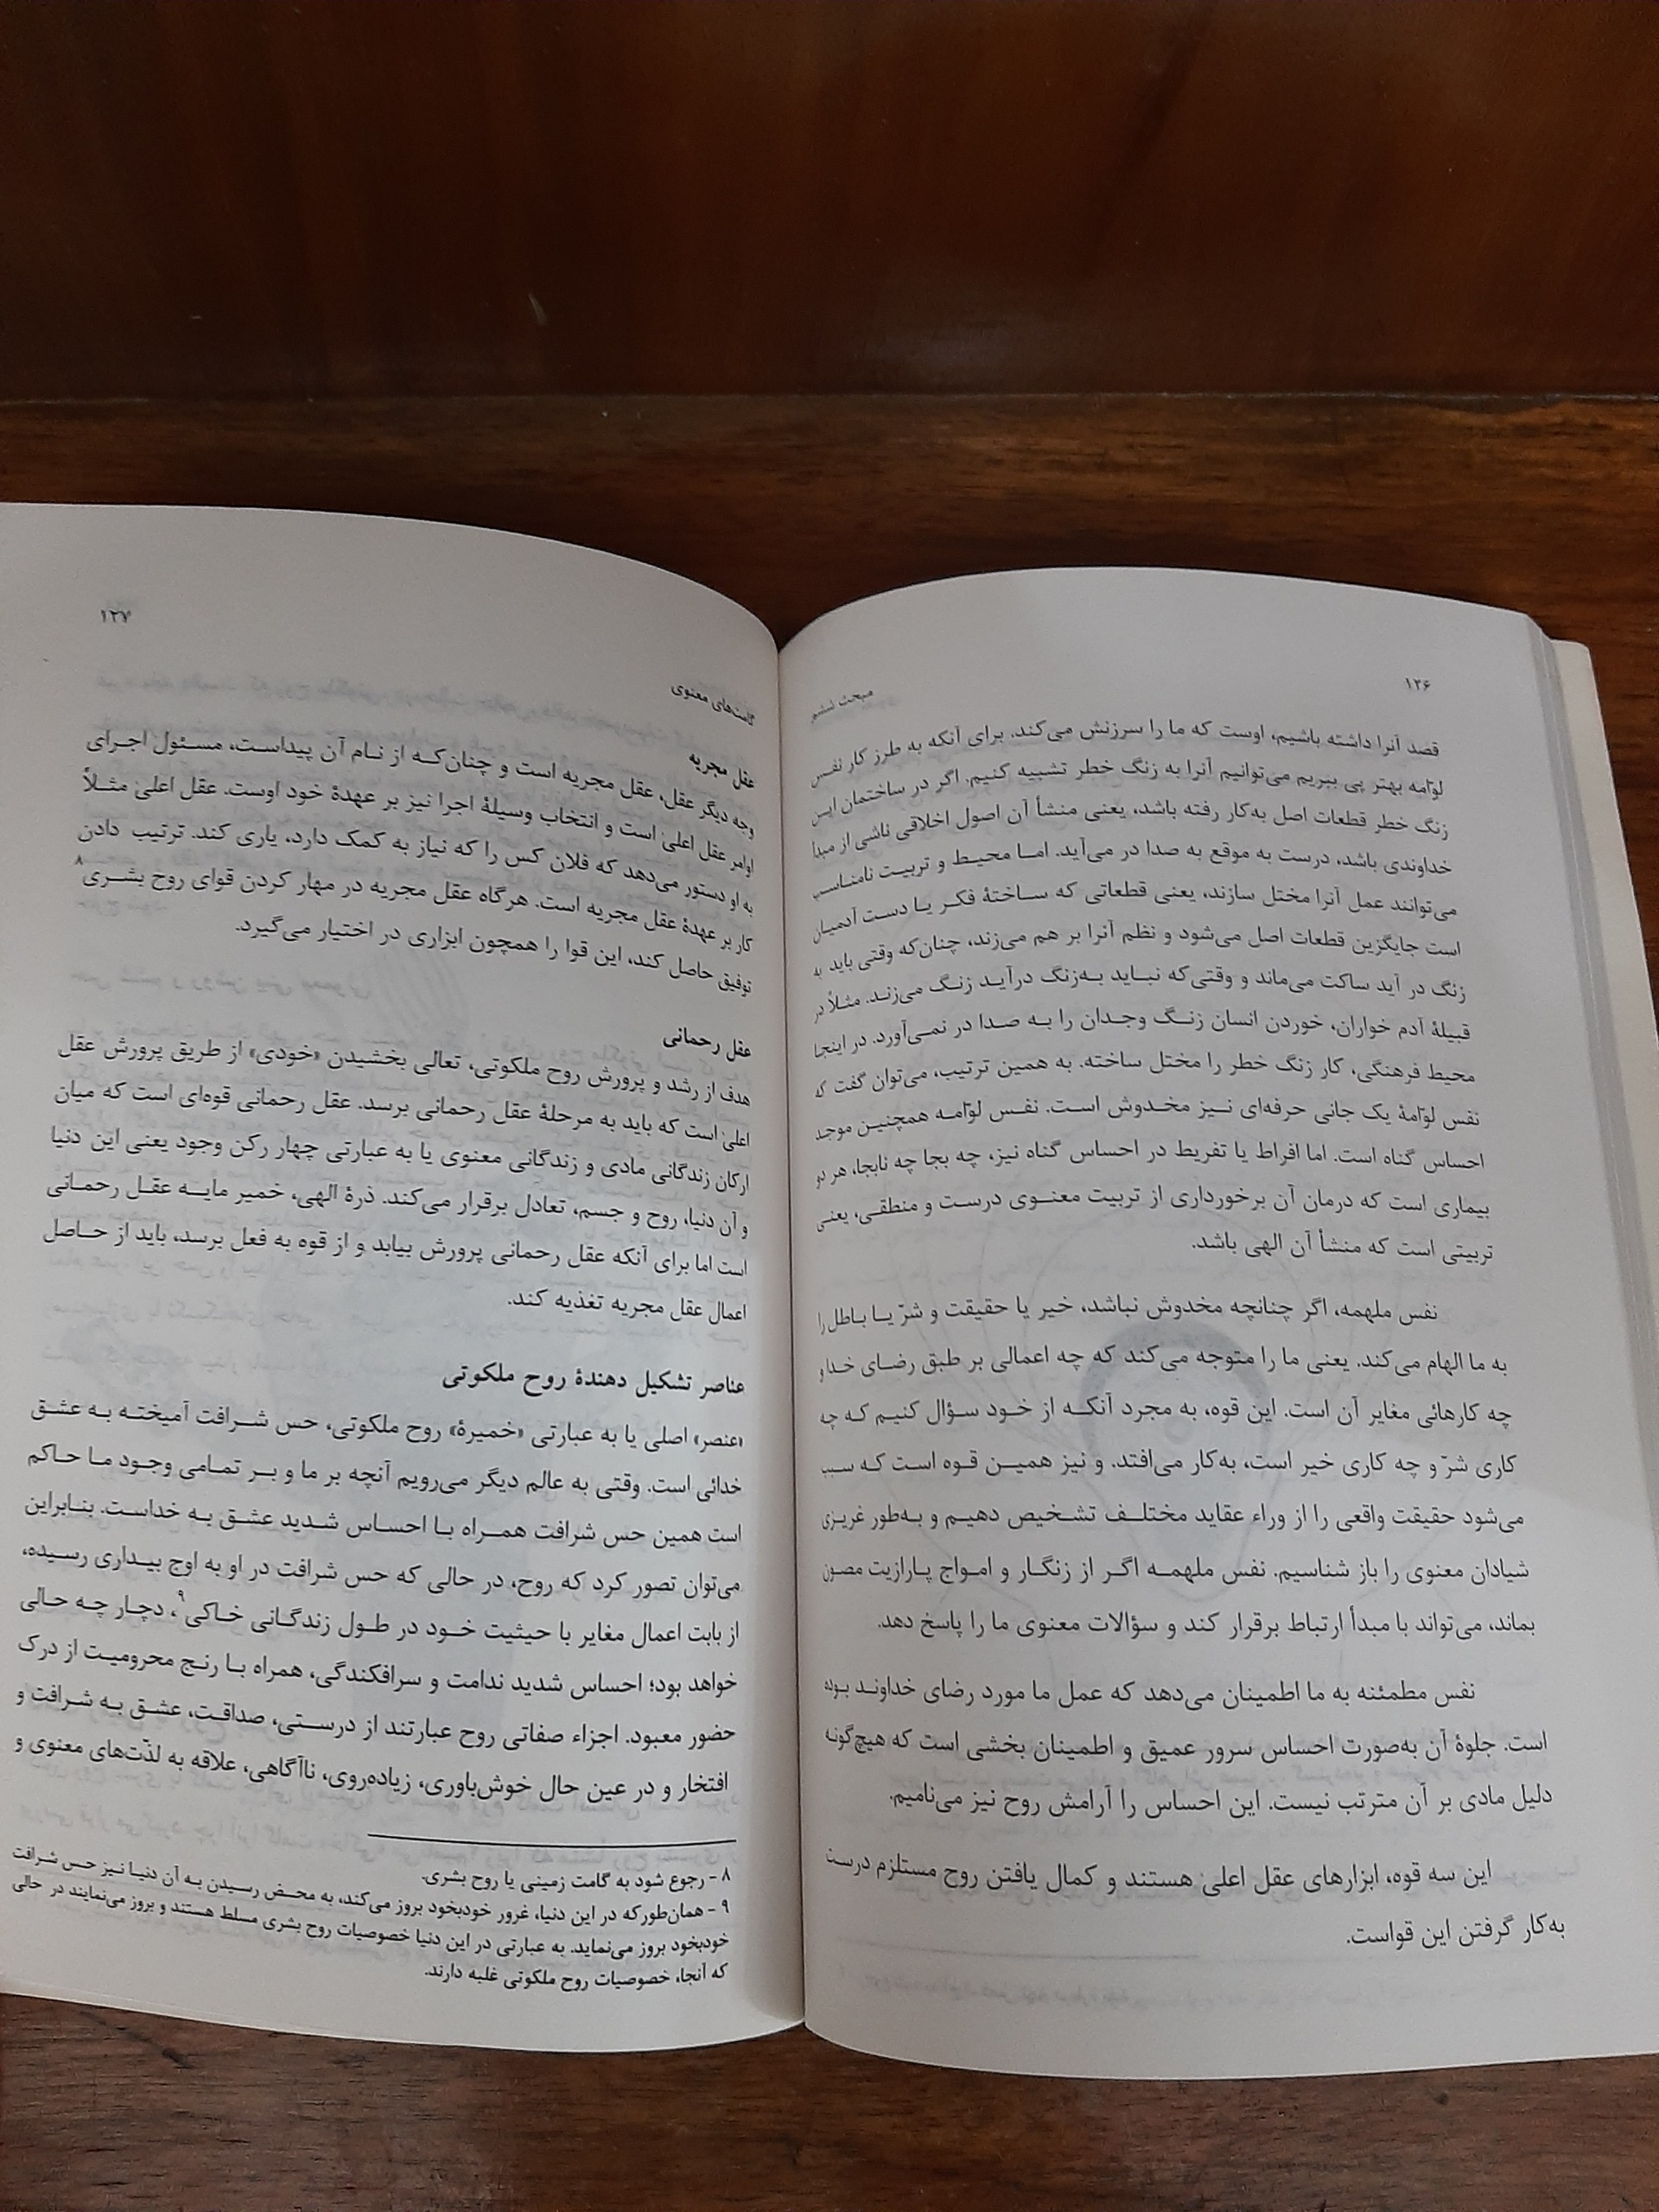 ۱۲۶
مبحث ششم
قصد آنرا داشته باشیم، اوست که ما را سرزنش می‌کند. برای آنکه به طرز کار نفس
لوّامه بهتر پی ببریم می‌توانیم آنرا به زنگ خطر تشبیه کنیم. اگر در ساختمان این
زنگ خطر قطعات اصل به‌کار رفته باشد، یعنی منشأ آن اصول اخلاقی ناشی از مبدأ
خداوندی باشد، درست به موقع به صدا در می‌آید. اما محیط و تربیت نامناسب
می‌توانند عمل آنرا مختل سازند، یعنی قطعاتی که ساختهٔ فکر یا دست آدمیان
است جایگزین قطعات اصل می‌شود و نظم آنرا بر هم می‌زند، چنان‌که وقتی باید به
زنگ در آید ساکت می‌ماند و وقتی‌که نباید به‌زنگ درآید زنگ می‌زند. مثلاً در
قبیلهٔ آدم خواران، خوردن انسان زنگ وجدان را به صدا در نمی‌آورد. در اینجا
محیط فرهنگی، کار زنگ خطر را مختل ساخته. به همین ترتیب، می‌توان گفت که
نفس لوّامهٔ یک جانی حرفه‌ای نیز مخدوش است. نفس لوّامه همچنین موجد
احساس گناه است. اما افراط یا تفریط در احساس گناه نیز، چه بجا چه نابجا، هر دو
بیماری است که درمان آن برخورداری از تربیت معنوی درست و منطقی، یعنی
تربیتی است که منشأ آن الهی باشد.
نفس ملهمه، اگر چنانچه مخدوش نباشد، خیر یا حقیقت و شرّ یا باطل را
به ما الهام می‌کند. یعنی ما را متوجه می‌کند که چه اعمالی بر طبق رضای خدا و
چه کارهائی مغایر آن است. این قوه، به مجرد آنکه از خود سؤال کنیم که چه
کاری شرّ و چه کاری خیر است، به‌کار می‌افتد. و نیز همین قوه است که سبب
می‌شود حقیقت واقعی را از وراء عقاید مختلف تشخیص دهیم و به‌طور غریزی
شیادان معنوی را باز شناسیم. نفس ملهمه اگر از زنگار و امواج پارازیت مصون
بماند، می‌تواند با مبدأ ارتباط برقرار کند و سؤالات معنوی ما را پاسخ دهد.
نفس مطمئنه به ما اطمینان می‌دهد که عمل ما مورد رضای خداوند بوده
است. جلوهٔ آن به‌صورت احساس سرور عمیق و اطمینان بخشی است که هیچ‌گونه
دلیل مادی بر آن مترتب نیست. این احساس را آرامش روح نیز می‌نامیم.
این سه قوه، ابزارهای عقل اعلیٰ هستند و کمال یافتن روح مستلزم درست
به‌کار گرفتن این قواست.
گامت‌های معنوی
۱۲۷
عقل مجریه
وجه دیگر عقل، عقل مجریه است و چنان‌که از نام آن پیداست، مسئول اجرای
اوامر عقل اعلیٰ است و انتخاب وسیلهٔ اجرا نیز بر عهدهٔ خود اوست. عقل اعلیٰ مثلاً
به او دستور می‌دهد که فلان کس را که نیاز به کمک دارد، یاری کند. ترتیب دادن
کار بر عهدهٔ عقل مجریه است. هرگاه عقل مجریه در مهار کردن قوای روح بشری۸
توفیق حاصل کند، این قوا را همچون ابزاری در اختیار می‌گیرد.
عقل رحمانی
هدف از رشد و پرورش روح ملکوتی، تعالی بخشیدن «خودی» از طریق پرورش عقل
اعلیٰ است که باید به مرحلهٔ عقل رحمانی برسد. عقل رحمانی قوه‌ای است که میان
ارکان زندگانی مادی و زندگانی معنوی یا به عبارتی چهار رکن وجود یعنی این دنیا
و آن دنیا، روح و جسم، تعادل برقرار می‌کند. ذرهٔ الهی، خمیر مایه عقل رحمانی
است اما برای آنکه عقل رحمانی پرورش بیابد و از قوه به فعل برسد، باید از حاصل
اعمال عقل مجریه تغذیه کند.
عناصر تشکیل دهندهٔ روح ملکوتی
«عنصر» اصلی یا به عبارتی «خمیرهٔ» روح ملکوتی، حس شرافت آمیخته به عشق
خدائی است. وقتی به عالم دیگر می‌رویم آنچه بر ما و بر تمامی وجود ما حاکم
است همین حس شرافت همراه با احساس شدید عشق به خداست. بنابراین
می‌توان تصور کرد که روح، در حالی که حس شرافت در او به اوج بیداری رسیده،
از بابت اعمال مغایر با حیثیت خود در طول زندگانی خاکی۹، دچار چه حالی
خواهد بود؛ احساس شدید ندامت و سرافکندگی، همراه با رنج محرومیت از درک
حضور معبود. اجزاء صفاتی روح عبارتند از درستی، صداقت، عشق به شرافت و
افتخار و در عین حال خوش‌باوری، زیاده‌روی، ناآگاهی، علاقه به لذّت‌های معنوی و
۸ - رجوع شود به گامت زمینی یا روح بشری.
۹ - همان‌طورکه در این دنیا، غرور خودبخود بروز می‌کند، به محض رسیدن به آن دنیا نیز حس شرافت
خودبخود بروز می‌نماید. به عبارتی در این دنیا خصوصیات روح بشری مسلط هستند و بروز می‌نمایند در حالی
که آنجا، خصوصیات روح ملکوتی غلبه دارند.